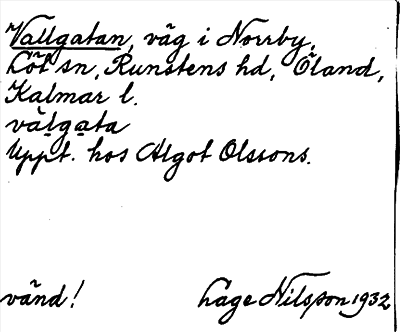 Vallgatan, väg i Norrby,
Löt sn, Runstens hd, Öland,
Kalmar l.
vàlgata
Uppt. hos Algot Olssons.
vänd! Lage Nilsson 1932